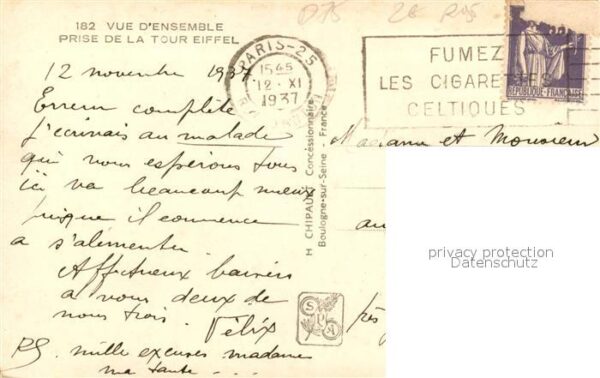 182 VUE D'ENSEMBLE
PRISE DE LA TOUR EIFFEL
12 novembre 1937
Erreur complète
j'écrivais au malade
qui nous espérons tous
ici va beaucoup mieux
puisque il commence
à s'alimenter
Affectueux baisers
à vous deux de
nous trois. Félix
PS. mille excuses madame
ma tante...
PARIS-25
15 45
12 · XI
1937
FUMEZ
LES CIGARETTES
CELTIQUES
REPUBLIQUE FRANÇAISE
H CHIPAULT Concessionnaire
Boulogne-sur-Seine - France
Madame et Monsieur
au
près
privacy protection
Datenschutz